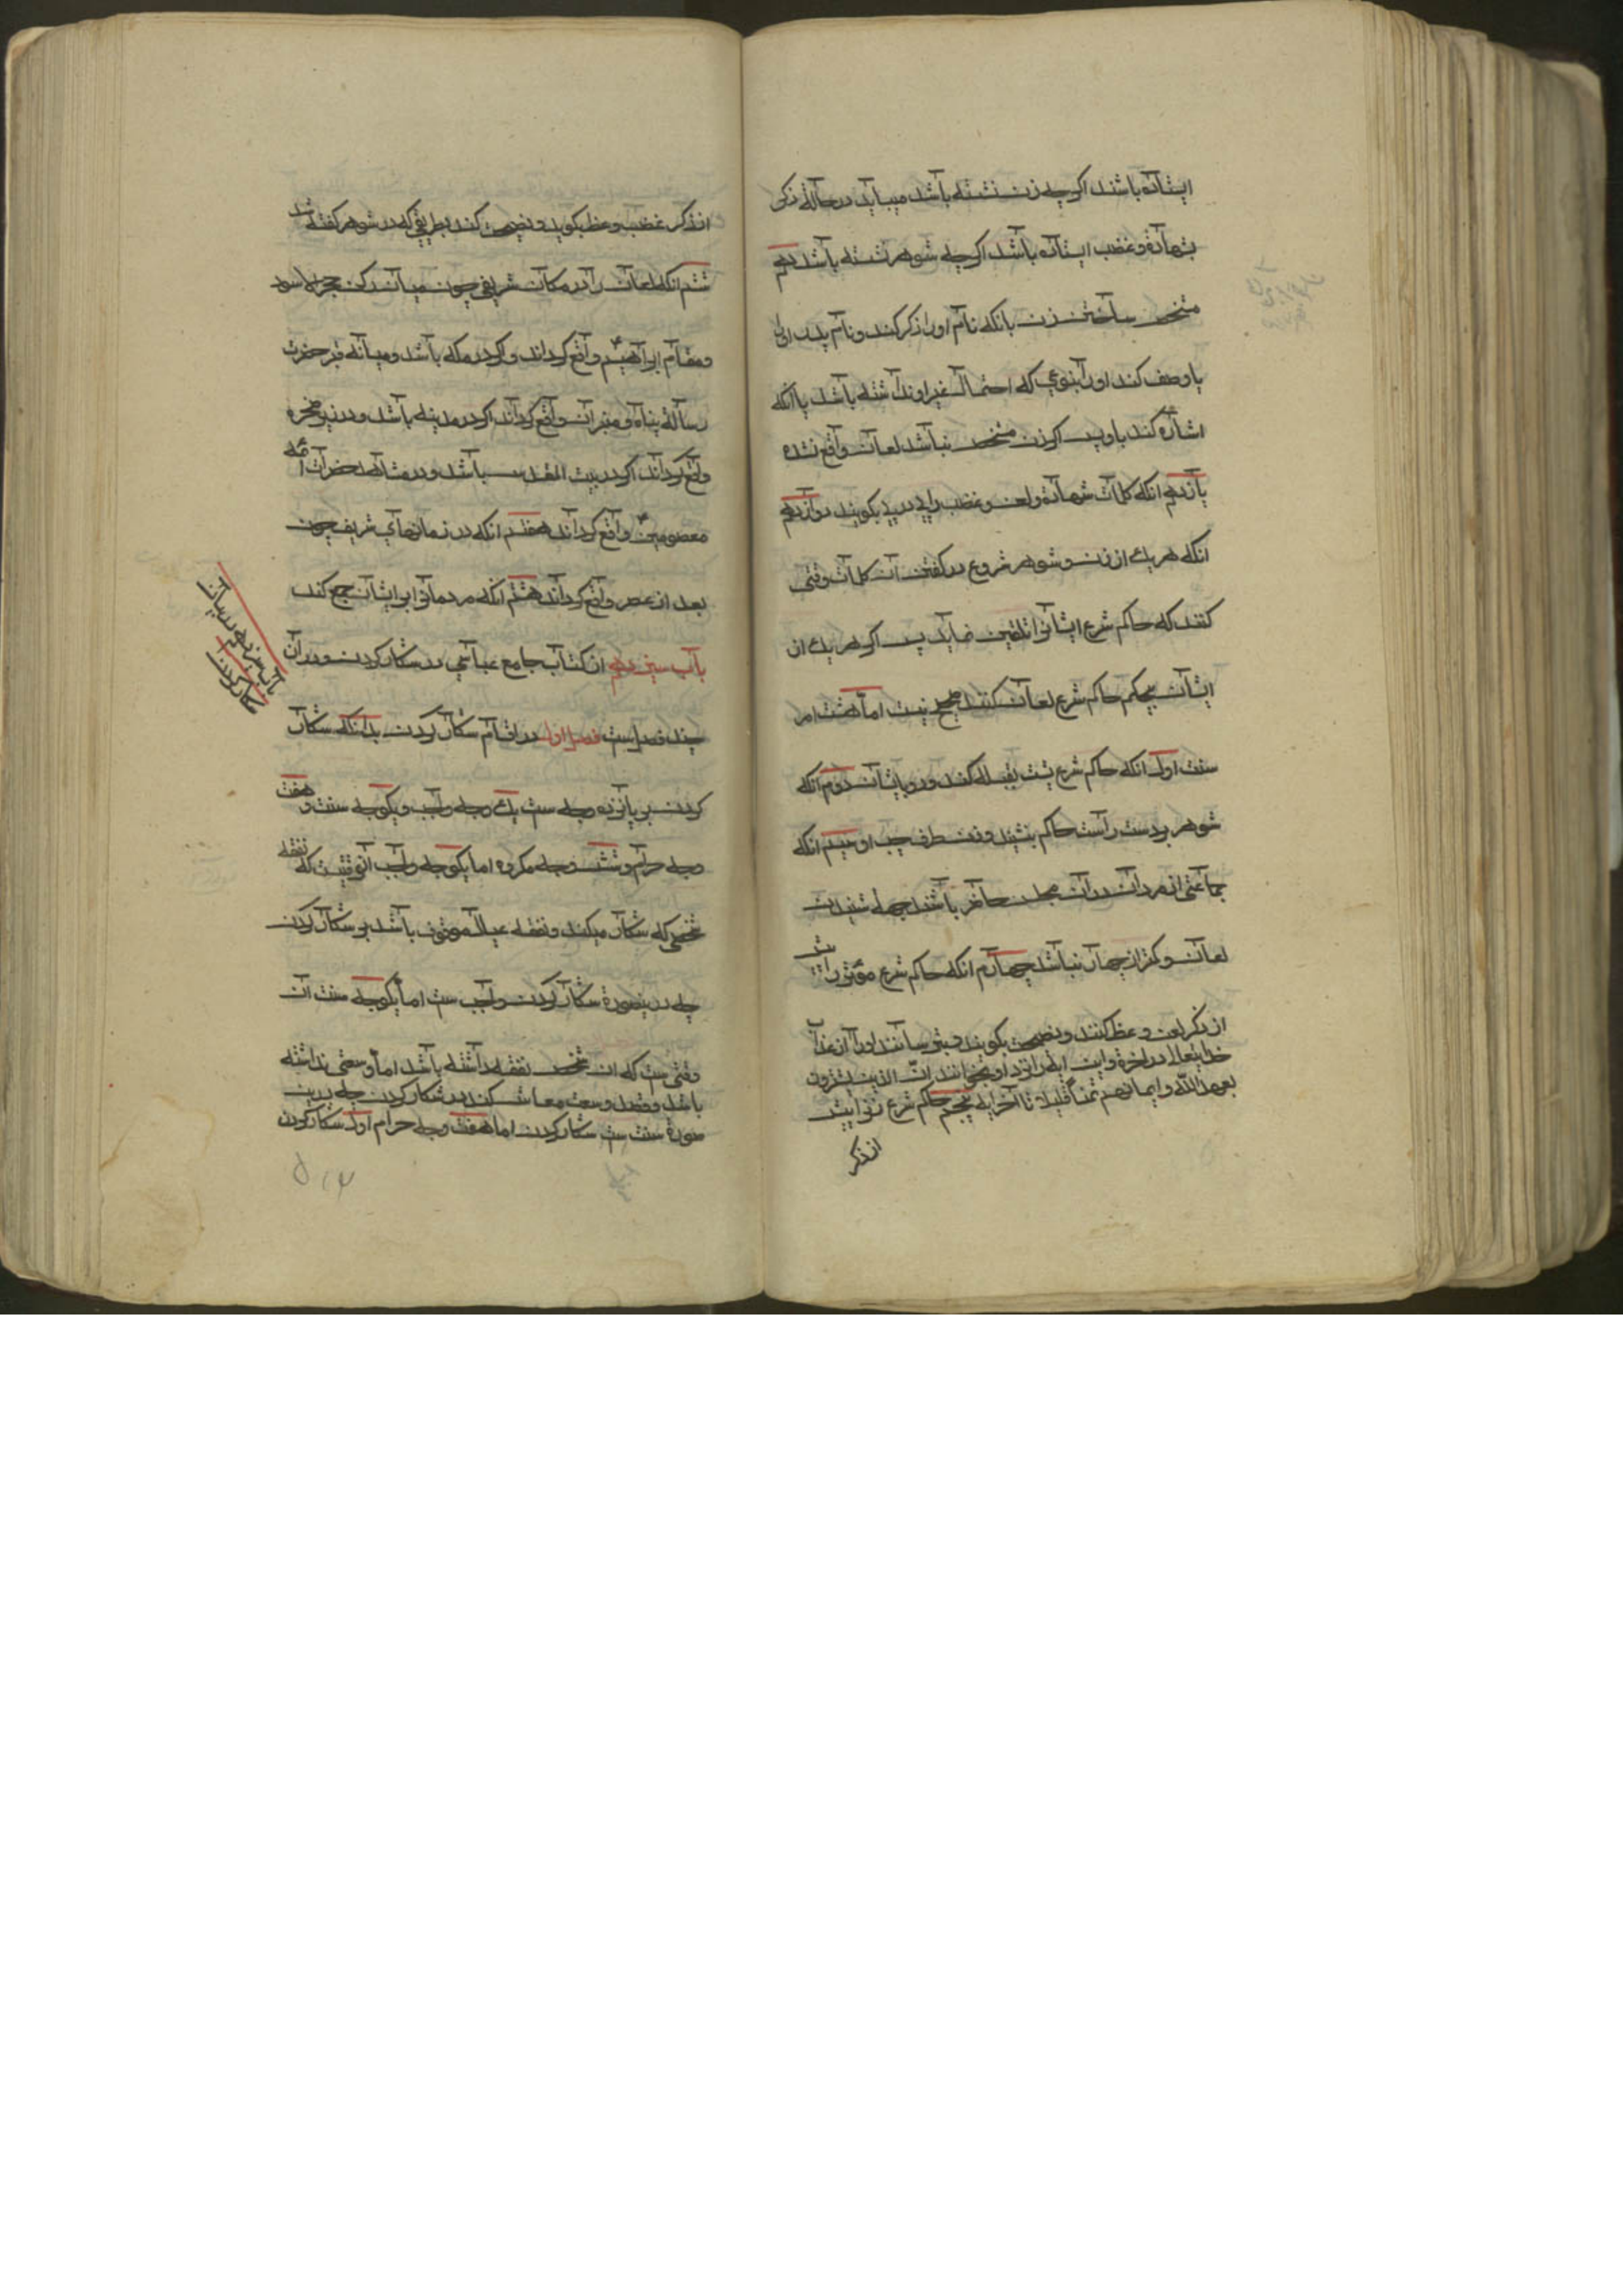 ایستاده باشند اکرچه زن نشسته باشد میباید در حالة ذکر
شهادة و غضب ایستاده باشد اکرچه شوهر نشسته باشد دهم
مشخص ساختن زن بانکه نام او را ذکر کند و نام پدر او را
یا وصف کند او را بنوعی که احتمال غیر او نداشته باشد یا انکه
اشاره کند باو پس اکر زن مشخص نباشد لعان واقع نشده
یازدهم انکه کلمات شهادة و لعن و غضب را پی در پی بکویند دوازدهم
انکه هر یك از زن و شوهر شروع در کفتن آن کلمات وقتی
کنند که حاکم شرع ایشانرا تلقین نماید پس اکر هر یك از
ایشان بیحکم حاکم شرع لعان کنند صحیح نیست اما هشت امر
سنت اول انکه حاکم شرع پشت بقبله کند و رو بایشان دوم انکه
شوهر بر دست راست حاکم بنشیند و زن بطرف چپ او سیم انکه
جماعتی از مردان در آن مجلس حاضر باشند جهة شنیدن
لعان و کمتر از چهار نباشد چهارم انکه حاکم شرع شوهر را پیش
از ذکر لعن وعظ کنند و نصیحت بکویند و بترسانند او را از عذاب
خدایتعالی در اخرة و این ایه را نزد او بخوانند انّ الذین یشترون
بعهد اللّه و ایمانهم ثمنا قلیلا تا آخر ایه پنجم حاکم شرع زنرا پیش
از ذکر
از ذکر غضب وعظ بکوید و نصیحت کند بطریقی که در شوهر کفته شد
ششم انکه لعان را در مکان شریفی چون میان رکن حجر الاسود
و مقام ابراهیم واقع کرداند و اکر در مکه باشد و میانه قبر حضرت
رسالة پناه و منبر ان واقع کرداند اکر در مدینه باشد و در زیر صخره
واقع کرداند اکر در بیت المقدس باشد و در مشاهد حضرات ائمه
معصومین واقع کرداند هفتم انکه در زمانهای شریف چون
بعد از عصر واقع کرداند هشتم آنکه مردمانرا بر ایشان جمع کند
باب سیزدهم از کتاب جامع عباسی در شکار کردن و در آن
چند فصل است فصل اول در اقسام شکار کردن بدانکه شکار
کردن بر پانزده وجه ست یك وجه واجب و یکوجه سنت و هفت
وجه حرام و شش وجه مکروه اما یکوجه واجب آنوقتیست که نفقه
شخصی که شکار میکند و نفقه عیال موقوف باشد بر شکار کردن
چه درینصورة شکار کردن واجب ست اما یکوجه سنت آن
وقتی ست که ان شخص نفقه داشته باشد اما وسعتی نداشته
باشد و قصد وسعت معاش کند در شکار کردن چه درین
صورة سنت ست شکار کردن اما هفت وجه حرام اول شکار کردن
باب سیزدهم در بیان
شکار کردن